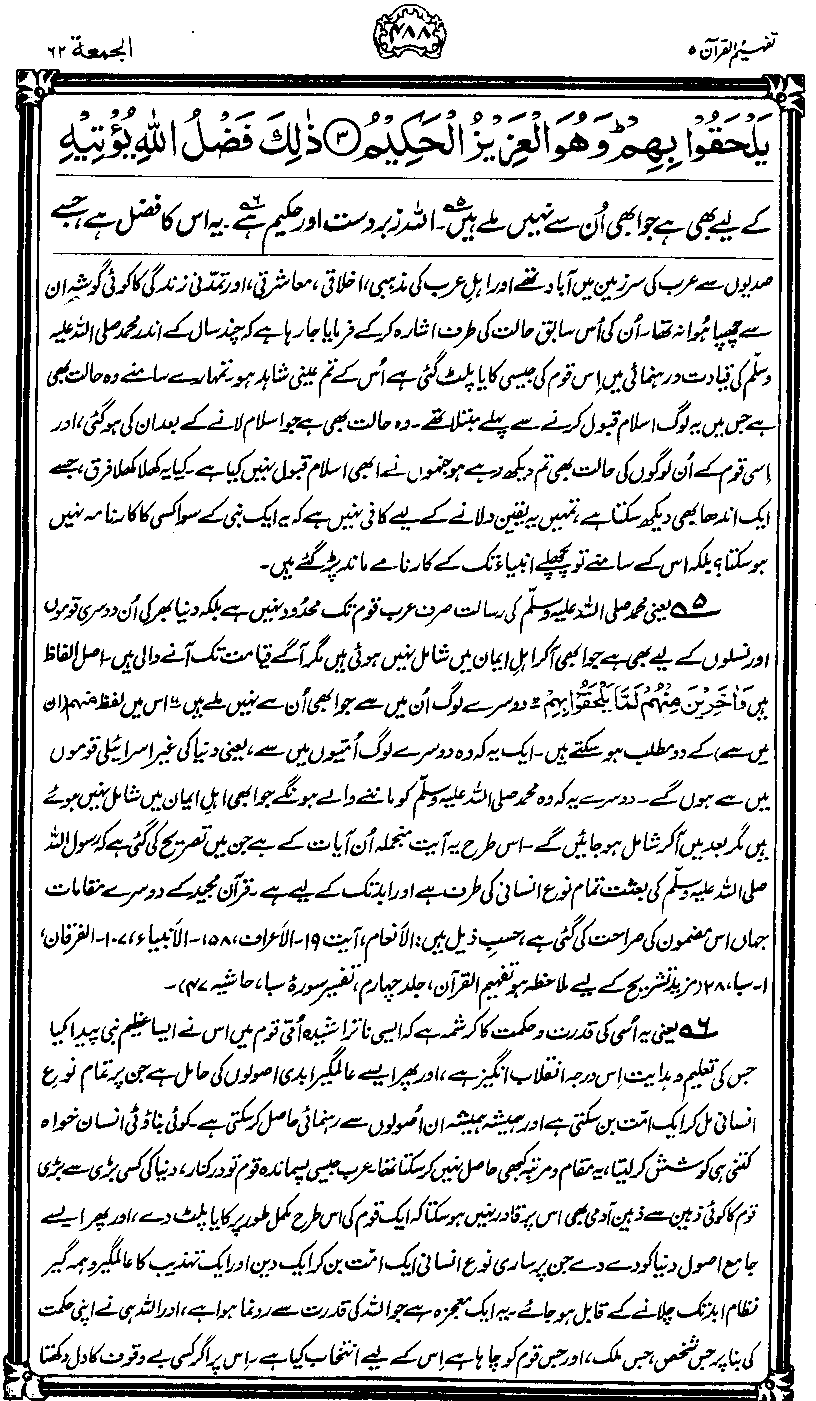 تفہیم القرآن ۵
۴۸۸
الجمعۃ ۶۲
يَلْحَقُوْا بِهِمْ ؕ وَهُوَ الْعَزِيْزُ الْحَكِيْمُ ۝۳ ذٰلِكَ فَضْلُ اللّٰهِ يُؤْتِيْهِ
کے لیے بھی ہے جو ابھی اُن سے نہیں ملے ہیں۵۔ اللہ زبردست اور حکیم ہے۶۔ یہ اس کا فضل ہے جسے
صدیوں سے عرب کی سرزمین میں آباد تھے اور اہلِ عرب کی مذہبی، اخلاقی، معاشرتی، اور تمدنی زندگی کا کوئی گوشہ ان
سے چھپا ہُوا نہ تھا۔ اُن کی اُس سابق حالت کی طرف اشارہ کر کے فرمایا جا رہا ہے کہ چند سال کے اندر محمد صلی اللہ علیہ
وسلّم کی قیادت و رہنمائی میں اِس قوم کی جیسی کایا پلٹ گئی ہے اُس کے تم عینی شاہد ہو۔ تمہارے سامنے وہ حالت بھی
ہے جس میں یہ لوگ اسلام قبول کرنے سے پہلے مبتلا تھے۔ وہ حالت بھی ہے جو اسلام لانے کے بعد ان کی ہو گئی، اور
اِسی قوم کے اُن لوگوں کی حالت بھی تم دیکھ رہے ہو جنہوں نے ابھی اسلام قبول نہیں کیا ہے۔ کیا یہ کھلا کھلا فرق، جسے
ایک اندھا بھی دیکھ سکتا ہے، تمہیں یہ یقین دلانے کے لیے کافی نہیں ہے کہ یہ ایک نبی کے سوا کسی کا کارنامہ نہیں
ہو سکتا؟ بلکہ اس کے سامنے تو پچھلے انبیاء تک کے کارنامے ماند پڑ گئے ہیں۔
۵ یعنی محمد صلی اللہ علیہ وسلّم کی رسالت صرف عرب قوم تک محدود نہیں ہے بلکہ دنیا بھر کی اُن دوسری قوموں
اور نسلوں کے لیے بھی ہے جو ابھی آ کر اہلِ ایمان میں شامل نہیں ہوئی ہیں مگر آگے قیامت تک آنے والی ہیں۔ اصل الفاظ
ہیں وَاٰخَرِيْنَ مِنْهُمْ لَمَّا يَلْحَقُوْا بِهِمْ۔ "دوسرے لوگ اُن میں سے جو ابھی اُن سے نہیں ملے ہیں"۔ اس میں لفظ منہم (ان
میں سے) کے دو مطلب ہو سکتے ہیں۔ ایک یہ کہ وہ دوسرے لوگ اُمّیوں میں سے، یعنی دنیا کی غیر اسرائیلی قوموں
میں سے ہوں گے۔ دوسرے یہ کہ وہ محمد صلی اللہ علیہ وسلّم کو ماننے والے ہونگے جو ابھی اہلِ ایمان میں شامل نہیں ہوئے
ہیں مگر بعد میں آ کر شامل ہو جائیں گے۔ اس طرح یہ آیت منجملہ اُن آیات کے ہے جن میں تصریح کی گئی ہے کہ رسول اللہ
صلی اللہ علیہ وسلّم کی بعثت تمام نوع انسانی کی طرف ہے اور ابد تک کے لیے ہے۔ قرآن مجید کے دوسرے مقامات
جہاں اس مضمون کی صراحت کی گئی ہے، حسبِ ذیل ہیں: الانعام، آیت ۱۹۔ الاعراف، ۱۵۸۔ الانبیاء، ۱۰۷۔ الفرقان،
۱۔ سبا، ۲۸ (مزید تشریح کے لیے ملاحظہ ہو تفہیم القرآن، جلد چہارم، تفسیر سورۂ سبا، حاشیہ ۴۷)۔
۶ یعنی یہ اُسی کی قدرت و حکمت کا کرشمہ ہے کہ ایسی ناتراشیدہ اُمّی قوم میں اس نے ایسا عظیم نبی پیدا کیا
جس کی تعلیم و ہدایت اِس درجہ انقلاب انگیز ہے، اور پھر ایسے عالمگیر ابدی اصولوں کی حامل ہے جن پر تمام نوع
انسانی مل کر ایک امّت بن سکتی ہے اور ہمیشہ ہمیشہ ان اُصولوں سے رہنمائی حاصل کر سکتی ہے۔ کوئی بناؤٹی انسان خواہ
کتنی ہی کوشش کر لیتا، یہ مقام و مرتبہ کبھی حاصل نہیں کر سکتا تھا۔ عرب جیسی پسماندہ قوم تو درکنار، دنیا کی کسی بڑی سے بڑی
قوم کا کوئی ذہین سے ذہین آدمی بھی اس پر قادر نہیں ہو سکتا کہ ایک قوم کی اس طرح مکمل طور پر کایا پلٹ دے، اور پھر ایسے
جامع اصول دنیا کو دے دے جن پر ساری نوع انسانی ایک امّت بن کر ایک دین اور ایک تہذیب کا عالمگیر و ہمہ گیر
نظام ابد تک چلانے کے قابل ہو جائے۔ یہ ایک معجزہ ہے جو اللہ کی قدرت سے رونما ہوا ہے، اور اللہ ہی نے اپنی حکمت
کی بنا پر جس شخص، جس ملک، اور جس قوم کو چاہا ہے اِس کے لیے انتخاب کیا ہے۔ اِس پر اگر کسی بے وقوف کا دل دکھتا